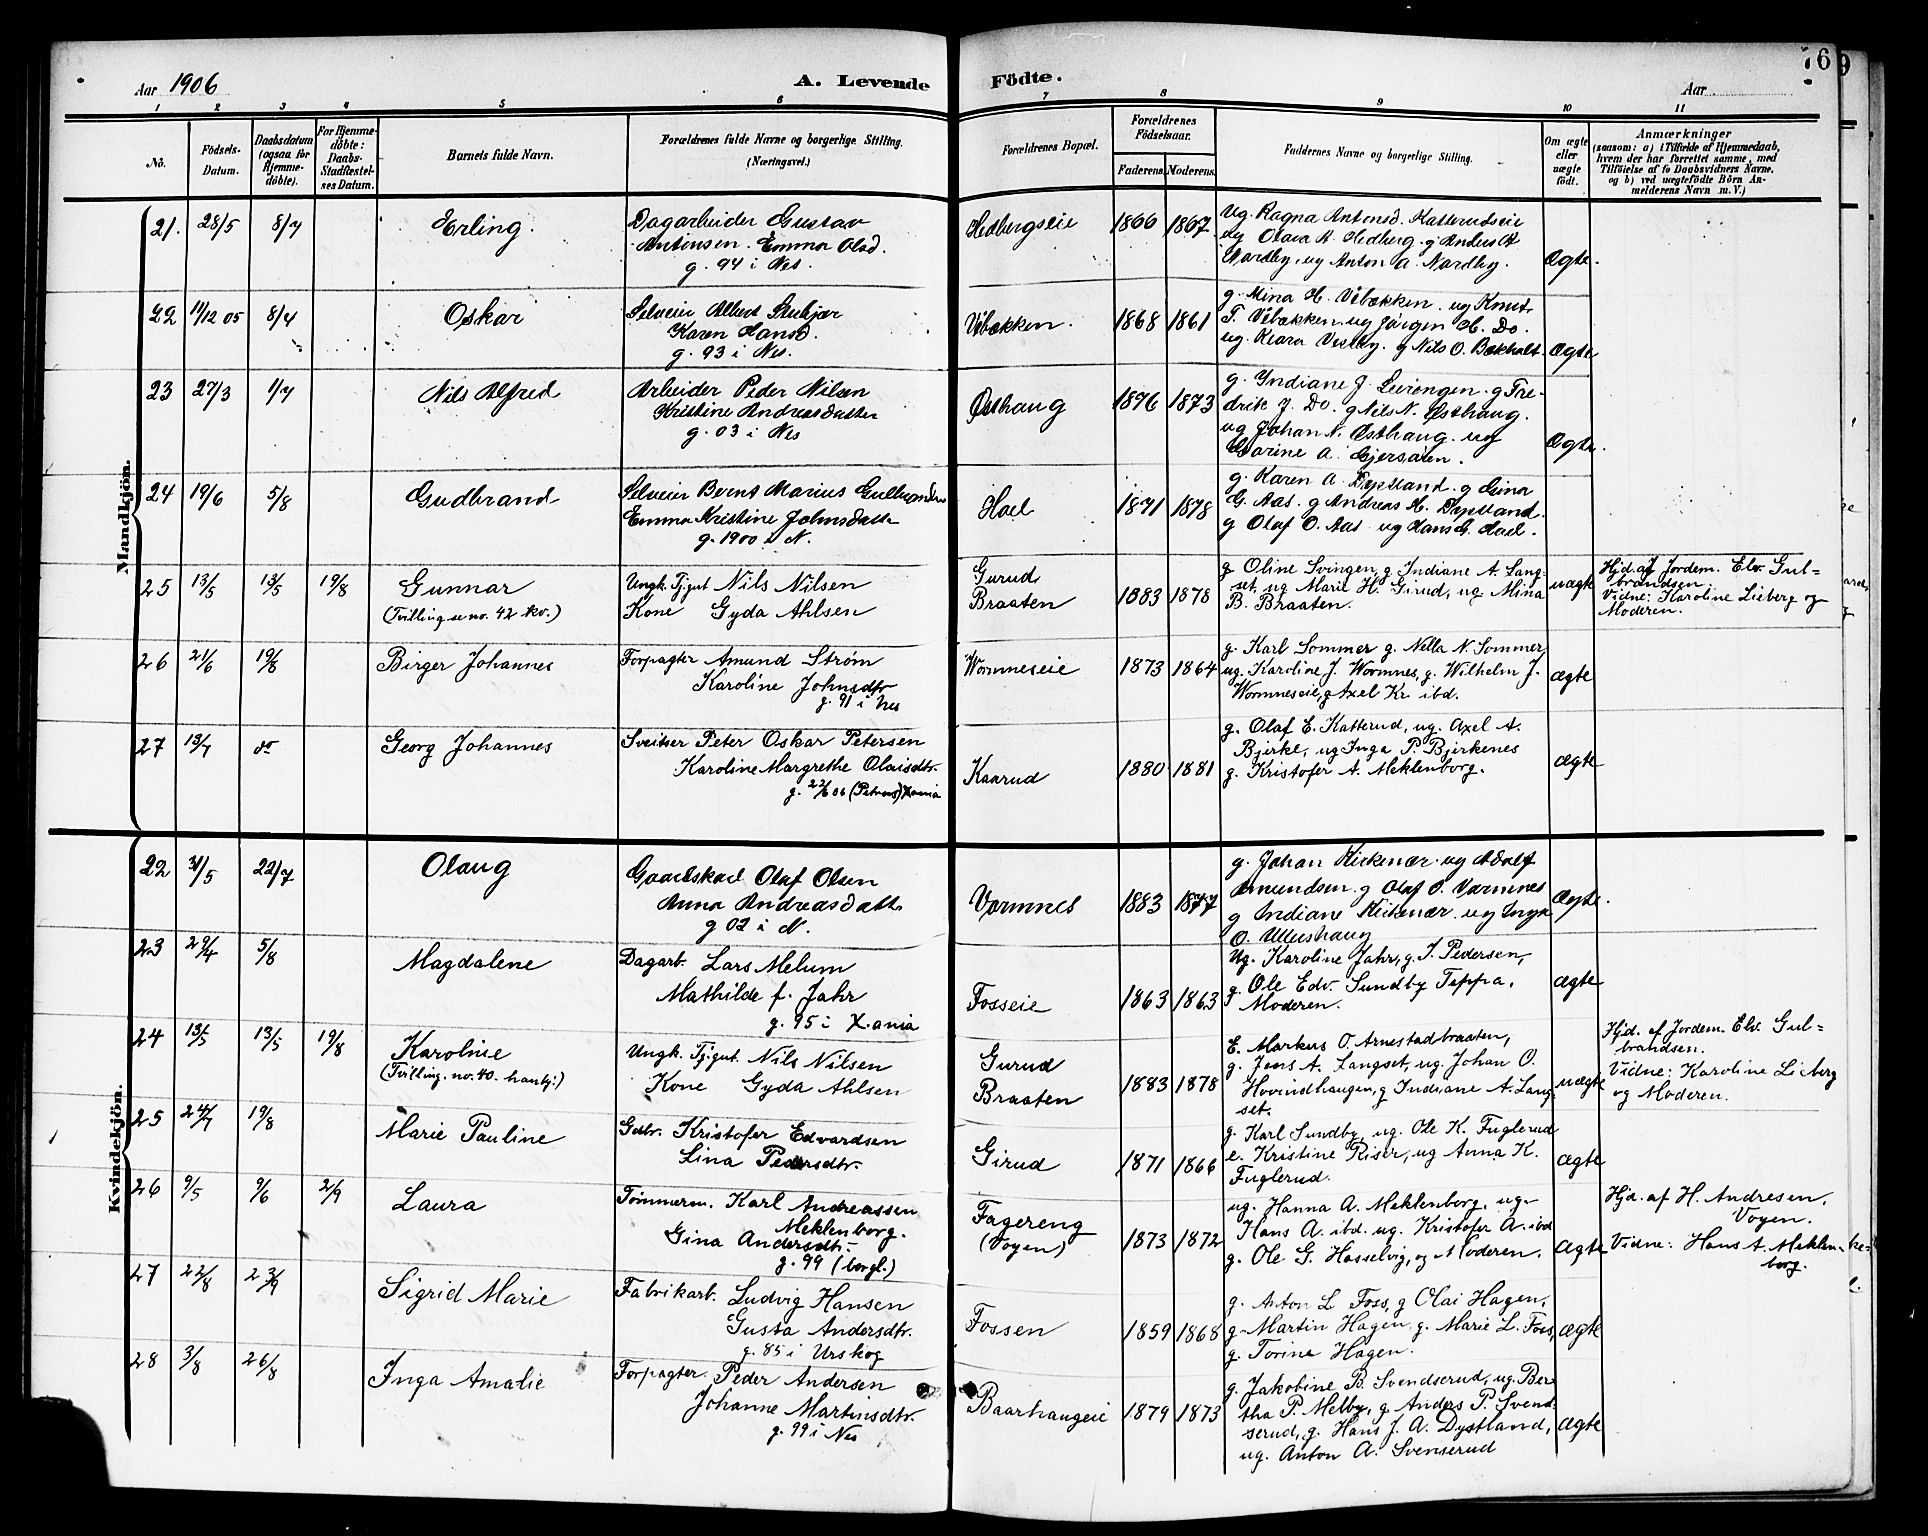 Aar 1906
A. Levende Födte.
Aar
76
9
1 2 3 4 5 6 7 8 9 10 11
No.
Födsels-Datum.
Daabsdatum (ogsaa for Hjemme-döbte).
For Hjemme-döbte: Daabs-Stadfæstel-ses Datum.
Barnets fulde Navn.
Forældrenes fulde Navne og borgerlige Stilling. (Næringsvei.)
Forældrenes Bopæl.
Forældrenes Födselsaar.
Faderens. Moderens.
Faddernes Navne og borgerlige Stilling.
Om ægte eller uægte födt.
Anmærkninger
(saasom: a) i Tilfælde af Hjemmedaab, hvem der har forrettet samme, med Tilföielse af to Daabsvidners Navne. og b) ved uægtefödte Börn An-melderens Navn m. V.)
Mandkjön.
21. 28/5 8/7 Erling. Dagarbeider Gustav
Antonsen. Emma Olsd.
g. 94 i Nes.
Hedbergseie 1866 1867 Ug. Ragna Antonsd. Katterudseie
ug Olava A. Hedberg. g Anders A
Nordby, ug Anton A. Nordby. Ægte.
22 11/12 05 8/7 Oskar Selveier Albert Stubjær
Karen Hansd.
g. 93 i Nes.
Vibækken. 1868 1861 g. Mina H. Vibækken. ug Knut
T. Vibækken. ug Jörgen H. Do.
ug. Klara Vestby. g Nils O. Bækholt. Ægte
23 27/3 1/7 Nils Alfred Arbeider Peder Nilsen
Kristine Andreasdatter
g. 03 i Nes
Østhaug 1876 1873 g. Indiane J. Leirengen. g Fre-
drik J. Do. g Nils N. Østhaug.
ug Johan N. Østhaug. ug
Karine A. Gjersøien. Ægte.
24 19/6 5/8 Gudbrand Selveier Bernt Marius Gulbrandsen
Emma Kristine Johnsdatter
g. 1900 i N.
Hoel 1871 1878 g. Karen A. Dystland. g Gina
G. Aas. g Andreas H. Dystland.
g Olaf O. Aas ug Hans G. Hoel.
25 13/5 13/5 19/8 Gunnar
(Tvilling se no. 42 kv.)
Ungk. Tj.gut Nils Nilsen
Kone Gyda Ahlsen
Gurud
Braaten 1883 1878 g Oline Svingen, g Indiane A. Lang-
set, ug Marie H. Girud, ug. Mina
B. Braaten. uægte Hjd. af Jordem. Elv. Gul-
brandsen.
Vidne: Karoline Lieberg og
Moderen.
26 21/6 19/8 Birger Johannes Forpagter Amund Strøm
Karoline Johnsdtr
g. 91 i Nes
Wormneseie 1873 1864 g. Karl Sommer g. Nella N. Sommer
ug. Karoline J. Wormnes, g. Wilhelm J.
Wormneseie, g Axel Kr. ibd. ægte
27 13/7 do Georg Johannes Sveitser Peter Oskar Petersen
Karoline Margrethe Olaisdtr.
g. 22/6 06 (Petrus) Xania
Kaarud 1880 1881 g. Olaf E. Katterud, ug. Axel A.
Bjerke, ug Inga P. Bjerkenes
g. Kristofer A. Meklenborg. ægte
Kvindekjön.
22 31/5 22/7 Olaug Gaardskarl Olaf Olsen
Anna Andreasdatter
g 02 i N.
Vormnes 1883 1877 g. Johan Kirkenær. ug Adolf
Amundsen. g Olaf O. Vormnes
g Indiane Kirkenær. ug Inga
O. Ullershaug Ægte.
23 29/4 5/8 Magdalene Dagarb. Lars Melum
Mathilde f. Jahr
g. 95 i X.ania
Fosseie 1863 1863 Ug. Karoline Jahr, g. J. Pedersen,
g. Ole Edv. Sundby Teppa.
Moderen. ægte
24 13/5 13/5 19/8 Karoline
(Tvilling. no. 40. hankj:)
Ungk. Tj.gut. Nils Nilsen
Kone Gyda Ahlsen
Gurud
Braaten 1883 1878 E. Markus O. Arnestadbraaten,
g. Jens A. Langset, ug. Johan O.
Hovindhaugen, g Indiane A. Lang-
set. uægte Hjd. af Jordem. Elv. Gul=
brandsen.
Vidne: Karoline Lieberg
og Moderen.
25 24/7 19/8 Marie Pauline Gdbr. Kristofer Edvardsen
Lina Pedersdtr.
Girud 1871 1866 g. Karl Sundby, ug. Ole K. Fuglerud
e. Kristine Riser, ug Anna K.
Fuglerud. ægte
26 9/5 9/6 2/9 Laura Tömmerm. Karl Andreassen
Meklenborg.
Gina Andersdtr.
g. 99 (borgl.)
Fagereng
(Voyen) 1873 1872 ug. Hanna A. Meklenborg, ug.
Hans A. ibd. ug. Kristofer A. ibd
g. Ole G. Hasselvig, og Moderen. ægte Hjd. af H. Andresen,
Voyen.
Vidne: Hans A. Meklen-
borg.
27 22/8 23/9 Sigrid Marie Fabrikarb. Ludvig Hansen
Gusta Andersdtr.
g. 85 i Urskog
Fossen 1859 1868 g. Anton L Foss, g Olai Hagen,
g Martin Hagen g. Marie L. Foss,
g. Torine Hagen. ægte
28 3/8 26/8 Inga Amalie Forpagter Peder Andersen
Johanne Martinsdtr.
g. 99 i Nes
Baarhaugeie 1879 1873 g. Jakobine B. Svendserud, ug. Ber
tha P. Melby, g Anders P. Svend-
serud, g. Hans J. A. Dystland,
ug. Anton A. Svenserud ægte